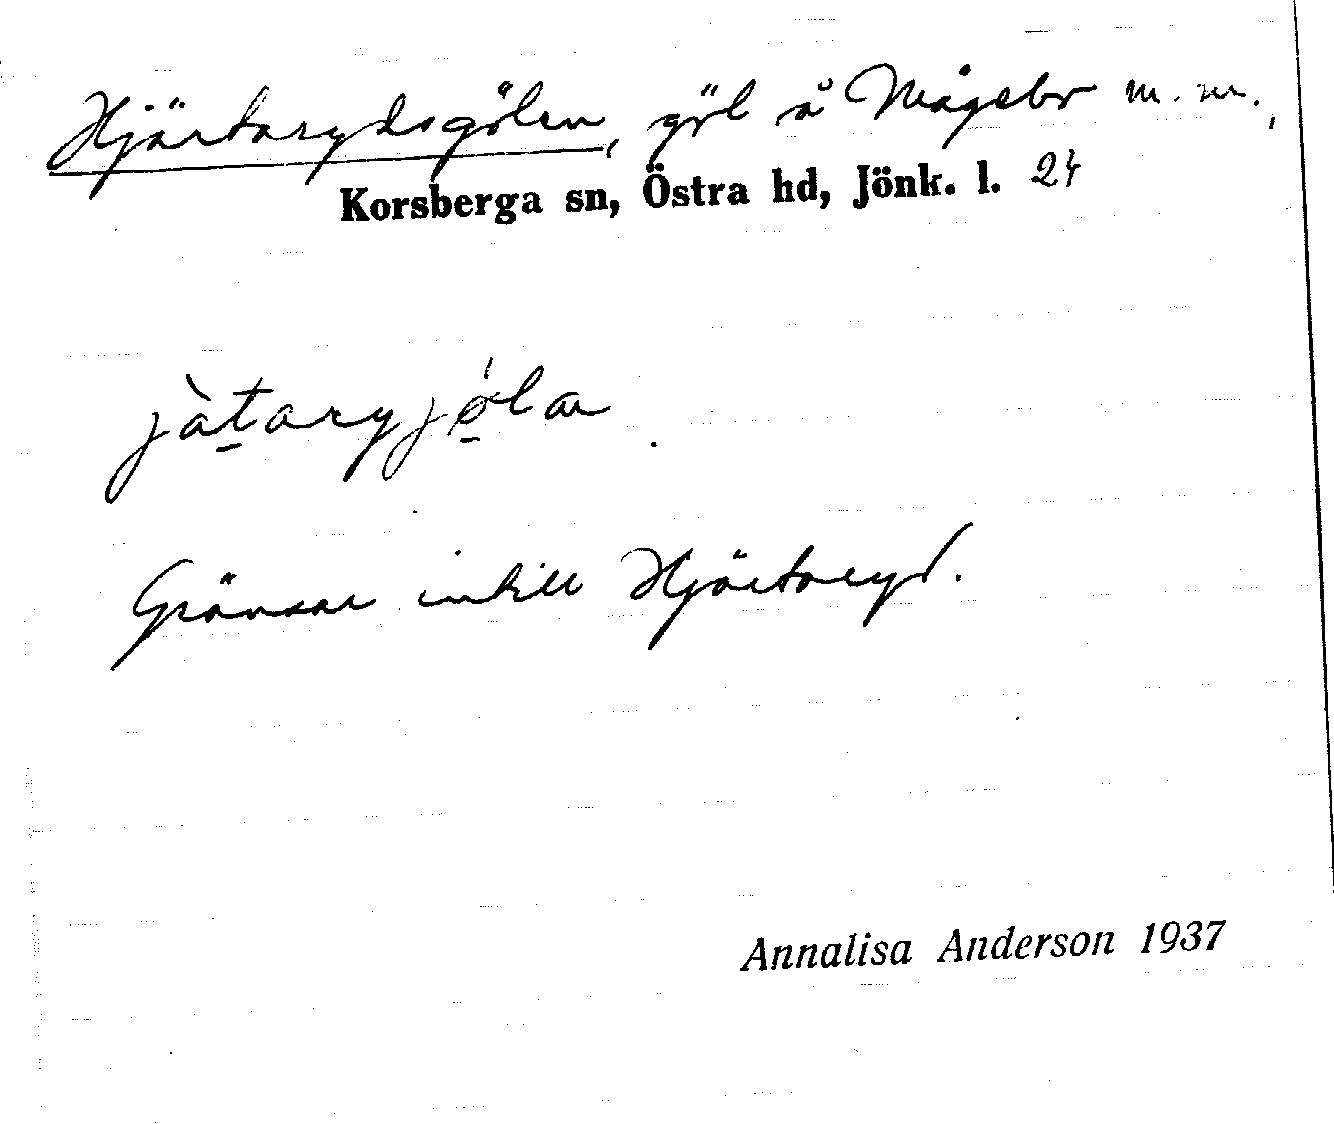 Hjärtarydsgölen, göl å Mågebo m.m.,
Korsberga sn, Östra hd, Jönk. l. 24
jàtaryjǿlan
Gränsar intill Hjärtaryd.
Annalisa Anderson 1937